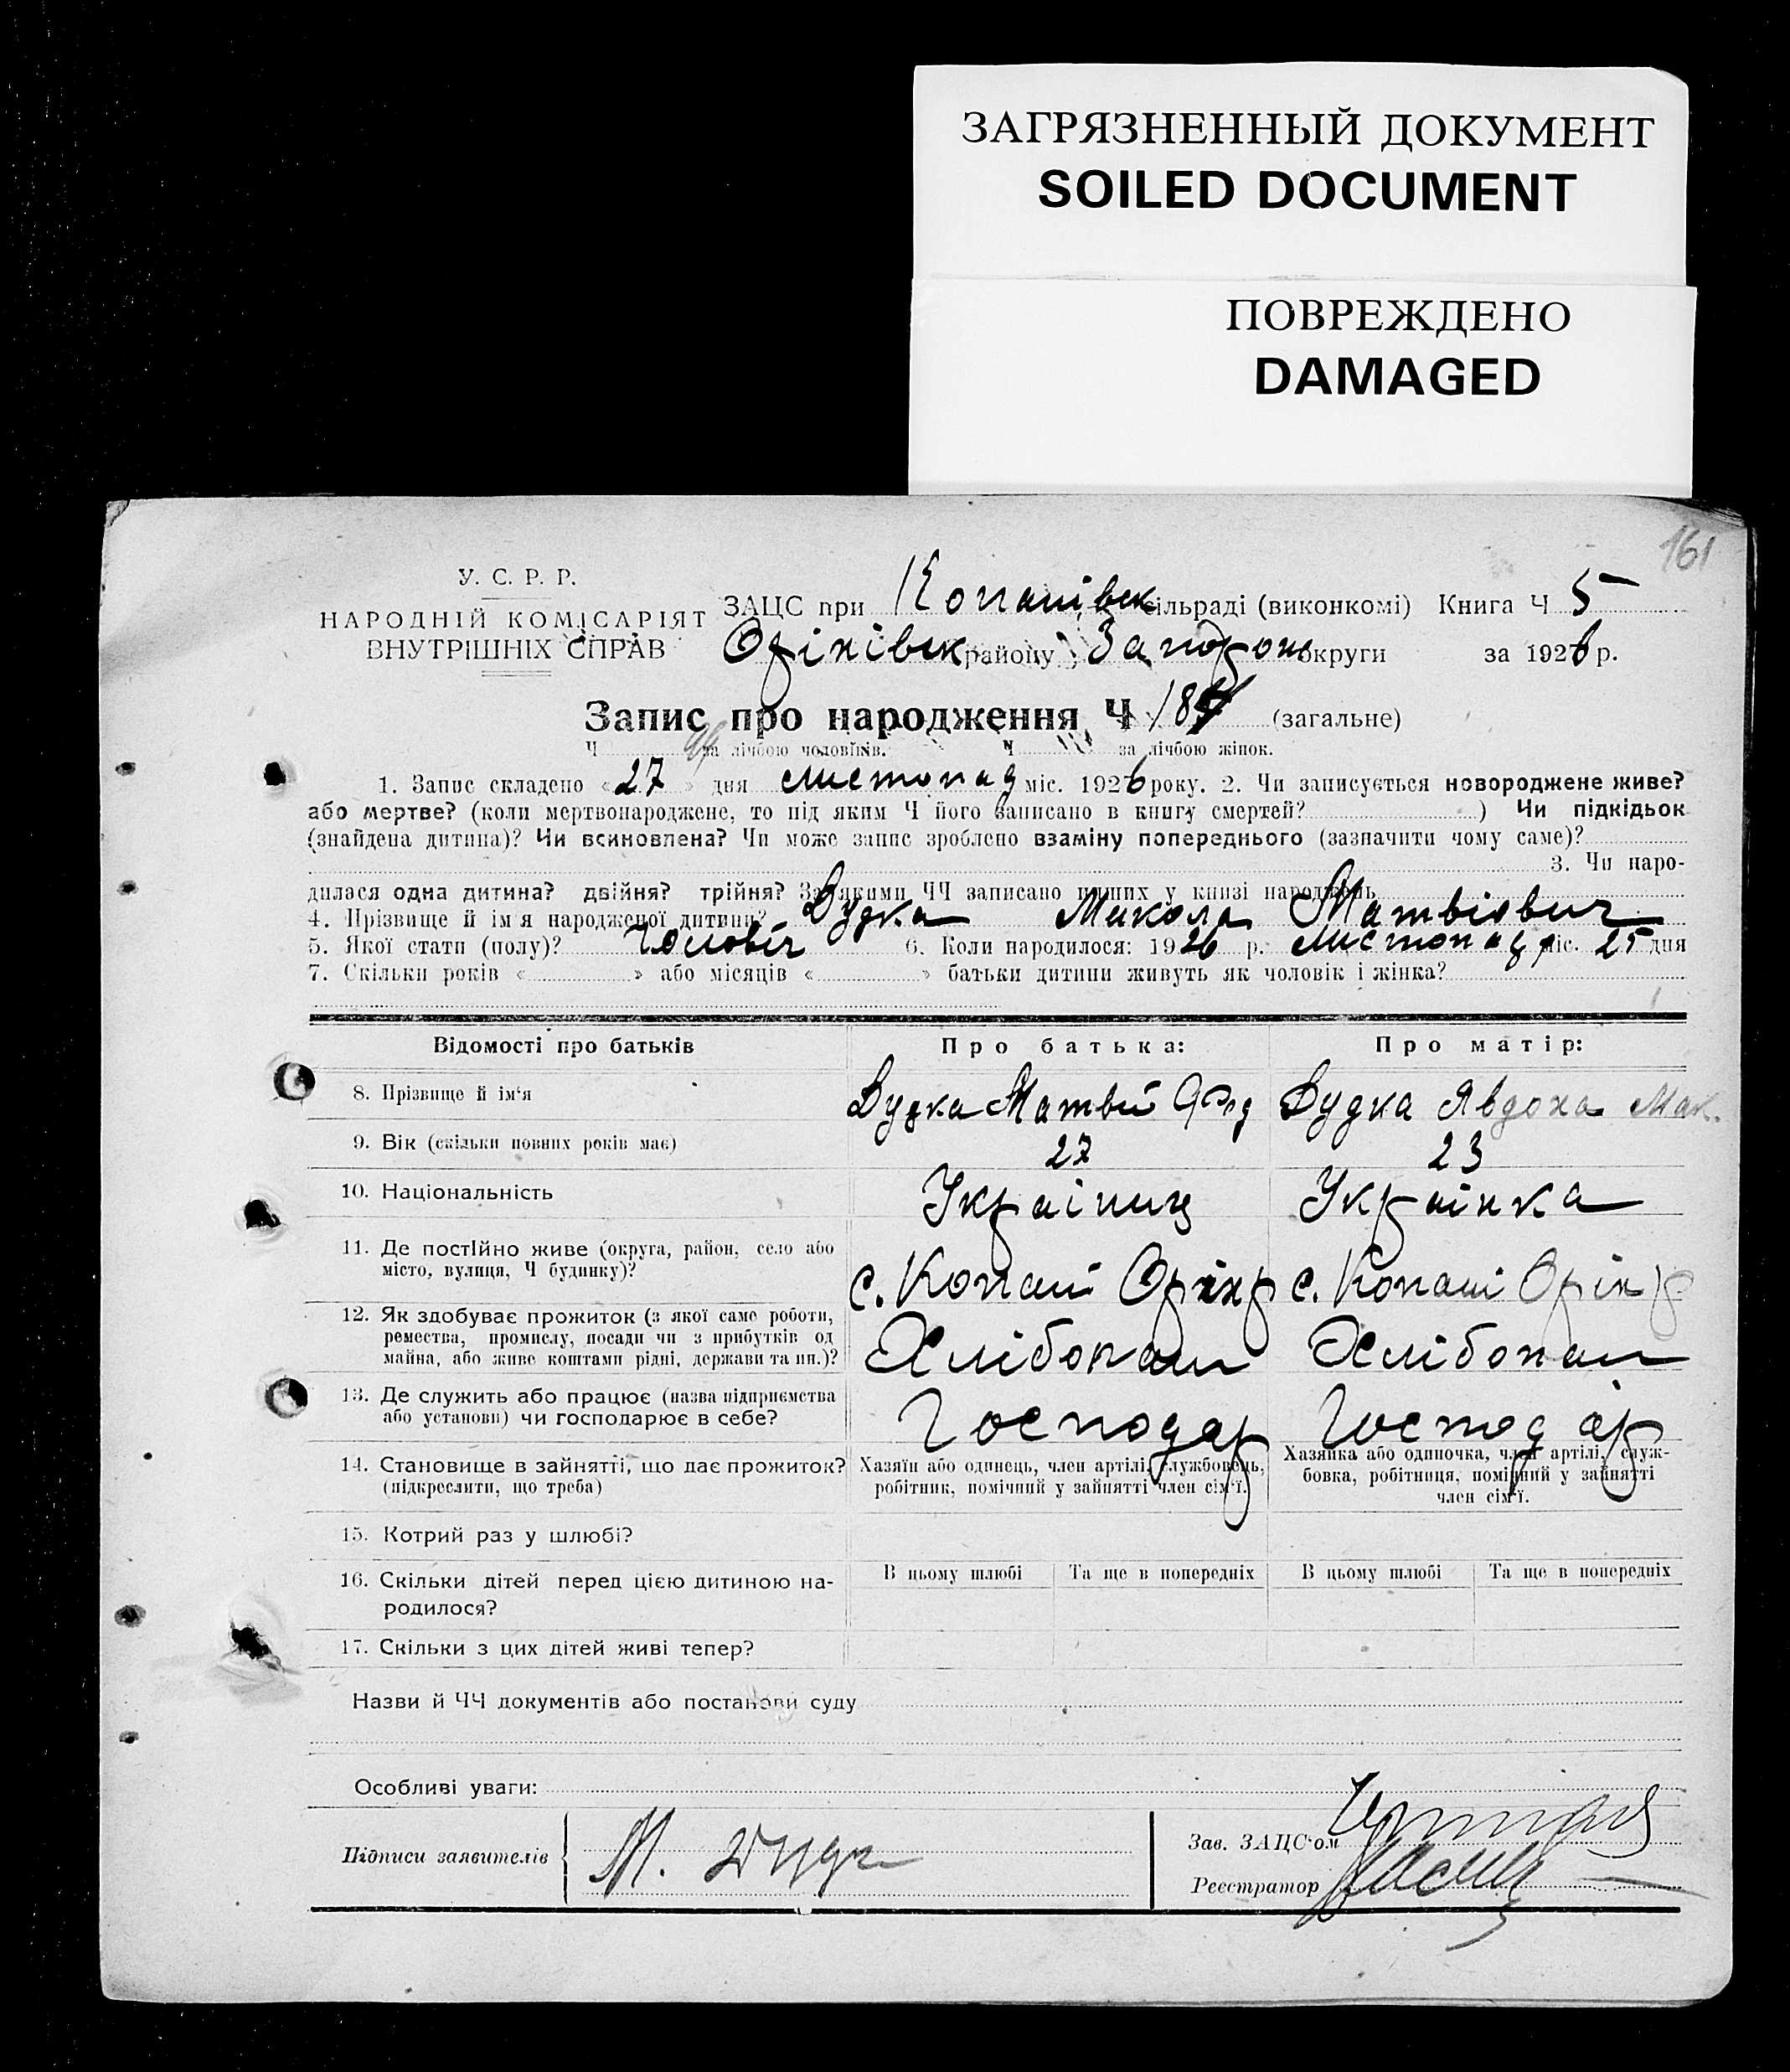 ЗАГРЯЗНЕННЫЙ ДОКУМЕНТ
SOILED DOCUMENT
ПОВРЕЖДЕНО
DAMAGED
161
У. С. Р. Р.
НАРОДНІЙ КОМІСАРІЯТ
ВНУТРІШНІХ СПРАВ
ЗАЦС при Копанівськ сільраді (виконкомі) Книга Ч 5
Оріхівськ району Запоріж округи за 1926 р.
Запис про народження Ч 184 (загальне)
Ч за лічбою чоловіків. Ч за лічбою жінок.
1. Запис складено « 27 » дня листопад міс. 1926 року. 2. Чи записується новороджене живе?
або мертве? (коли мертвонароджене, то під яким Ч його записано в книгу смертей? ) Чи підкідьок
(знайдена дитина)? Чи всиновлена? Чи може запис зроблено взаміну попереднього (зазначити чому саме)?
3. Чи наро-
дилася одна дитина? двійня? трійня? За якими ЧЧ записано инших у книзі народжень
4. Прізвище й ім'я народженої дитини? Дудка Микола Матвіович
5. Якої стати (полу)? Чоловіч 6. Коли народилося: 1926 р. листопад міс. 25 дня
7. Скільки років « » або місяців « » батьки дитини живуть як чоловік і жінка?
Відомості про батьків Про батька: Про матір:
8. Прізвище й ім'я Дудка Матвій Фед Дудка Явдоха Мак.
9. Вік (скільки повних років має) 27 23
10. Національність Українец Українка
11. Де постійно живе (округа, район, село або
місто, вулиця, Ч будинку)? с. Копані Оріх р с. Копані Оріх р
12. Як здобуває прожиток (з якої саме роботи,
ремества, промислу, посади чи з прибутків од
майна, або живе коштами рідні, держави та ин.)? Хлібопаш Хлібопаш
13. Де служить або працює (назва підприємства
або установи) чи господарює в себе? Господар Господар
14. Становище в зайнятті, що дає прожиток?
(підкреслити, що треба)
Хазяїн або одинець, член артілі, службовець,
робітник, помічний у зайнятті член сім'ї.
Хазяйка або одиночка, член артілі, служ-
бовка, робітниця, помічний у зайнятті
член сім'ї.
15. Котрий раз у шлюбі?
16. Скільки дітей перед цією дитиною на-
родилося?
В цьому шлюбі Та ще в попередніх В цьому шлюбі Та ще в попередніх
17. Скільки з цих дітей живі тепер?
Назви й ЧЧ документів або постанови суду
Особливі уваги:
Підписи заявителів М. Дудк
Зав. ЗАЦС'ом
Реєстратор